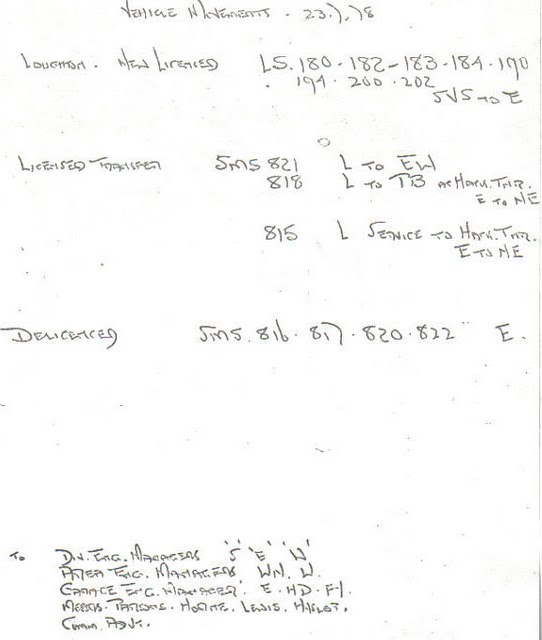 VEHICLE MOVEMENTS . 23.7.78
LOUGHTON . NEW LICENCED LS. 180 . 182 - 183 . 184 . 190
. 194 . 200 . 202
SVS TO E
LICENSED TRANSFER SMS 821 L TO EW
818 L TO TB AS HACK.TNR.
E TO NE
815 L SERVICE TO HACK.TNR.
E TO NE
DELICENCED SMS. 816 . 817 . 820 . 822 E.
TO DIV. ENG. MANAGERS 'S' 'E' 'W'
AREA ENG. MANAGERS WN. W.
GARAGE ENG. MANAGER. E. HD. FY.
MESSRS. PARSONS. HORNE. LEWIS.
COMM. ADVT.